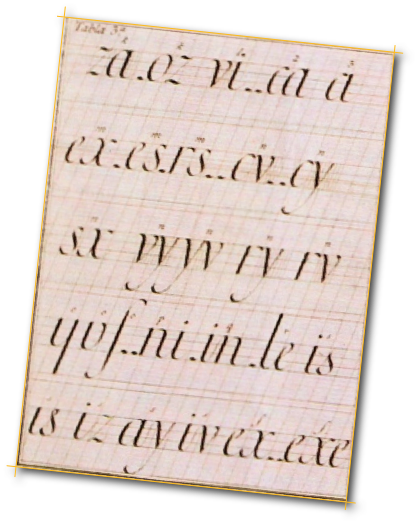 Tabla 3ª
za.oz vi..ca a
ex.es.rs..cv..cy
sx yyyv ry rv
ni..in..le is
is iz ay iv ex..exe